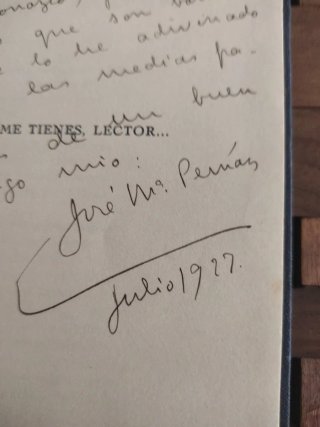 que son
lo he adivinado
las medias pa-
de un buen
ME TIENES, LECTOR...
go mío:
José Mª. Pemán
Julio 1977.